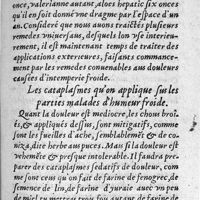 once, valerianne autant, aloes hepatic six onces
qu'il en soit donné vne dragme par l'espace d'vn
an. Consideré que nous auons traictés plusieurs
remedes vniuersaus, desquels lon vse interieure-
ment, il est maintenant temps de traiter des
applications exterieures, faisants commance-
ment par les remedes conuenables aus douleurs
causées d'intemperie froide.
Les cataplasmes qu'on applique sus les
parties malades d'humeur froide.
Quant la douleur est mediocre, les chous broi-
és, & appliqués dessus, sont mitigatifs, comme
sont les fueilles d'ache, semblablemẽt & de co-
niza, dite herbe aus puces. Mais si la douleur est
vehemẽte & presque intolerable. Il faudra pre-
parer des cataplasmes sedatifs de douleur, com-
me sont ceus qu'on fait de farine de fenogrec, de
semence de lin, de farine d'yuraie auec vn peu
de miel ou metre trois fois autant de farine de